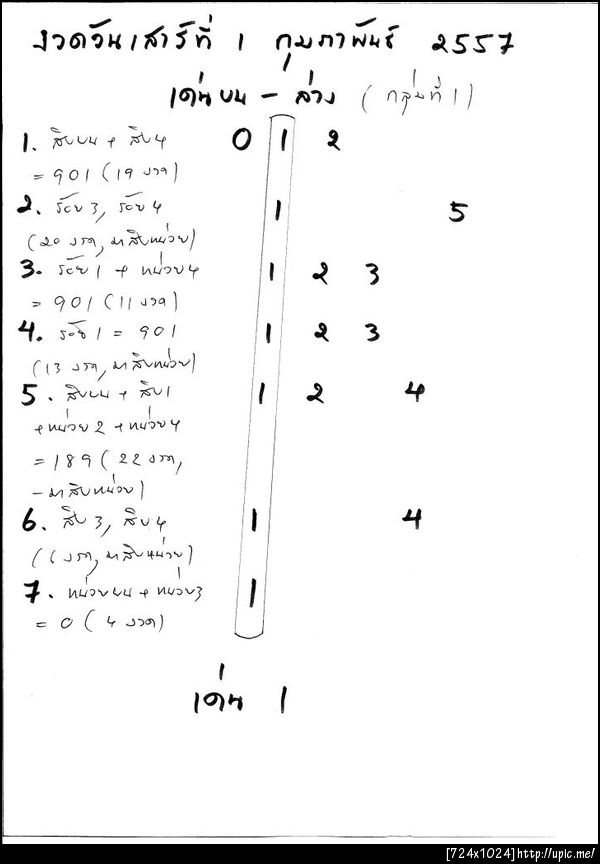 งวดวันเสาร์ที่ 1 กุมภาพันธ์ 2557
เด่นบน - ล่าง (กลุ่มที่ 1)
1. สิบบน + สิบ4 0 1 2
= 901 (19 งวด)
2. ร้อย3, ร้อย4 1 5
(20 งวด, มาสิบหน่วย)
3. ร้อย1 + หน่วย4 1 2 3
= 901 (11 งวด)
4. ร้อย1 = 901 1 2 3
(13 งวด, มาสิบหน่วย)
5. สิบบน + สิบ1 1 2 4
+หน่วย2 +หน่วย4
= 189 (22 งวด,
-มาสิบหน่วย)
6. สิบ3, สิบ4 1 4
(6 งวด, มาสิบหน่วย)
7. หน่วยบน + หน่วย3 1
= 0 (4 งวด)
เด่น 1
[724x1024]http://upic.me/